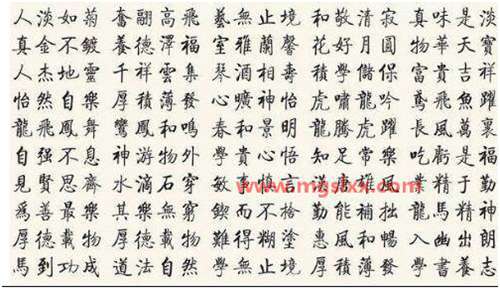 人淡如菊 奮翮高飛 藝無止境 和敬清寂 真味是淡
真金不鍍 養德澤福 室雅蘭馨 花好月圓 物華天寶
人杰地靈 千祥雲集 琴酒相壽 積學儲保 富貴吉祥
怡然自樂 厚積薄發 心曠神怡 虎嘯龍吟 鳶飛魚躍
龍飛鳳舞 鸞鳳和鳴 春和景明 龍騰虎躍 長風萬裏
自强不息 神游物外 學貴心悟 知足常樂 吃虧是福
見賢思齊 水滴石穿 敏事慎言 雄風 業精于勤
爲善最樂 其樂無窮 鍥而不捨 勤能補拙 龍馬精神
厚德載物 厚德載物 難得糊塗 惠風和暢 入幽出朗
馬到功成 道法自然 學無止境 厚積薄發 學書養志